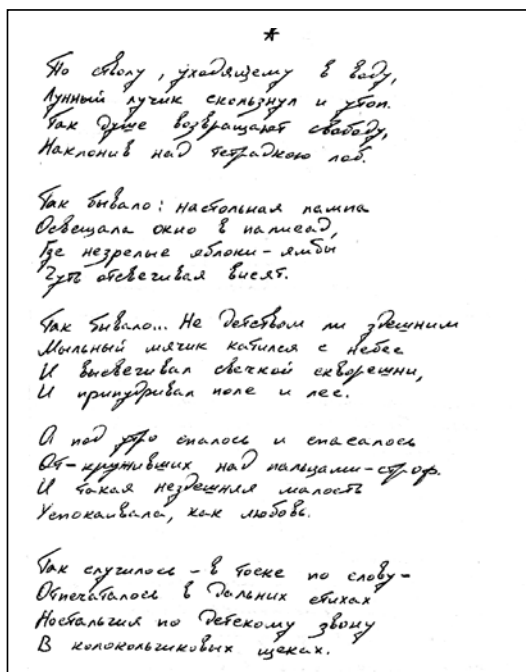 *
По стволу, уходящему в воду,
Лунный лучик скользнул и утоп.
Так душе возвращают свободу,
Наклонив над тетрадкою лоб.
Так бывало: настольная лампа
Освещала окно в палисад,
Где незрелые яблоки - ямбы
Чуть отсвечивая висят.
Так бывало... Не детством ли здешним
Мыльный мячик катился с небес
И высвечивал свечкой скворешни,
И припудривал поле и лес.
А под утро спалось и спасалось
От - круживших над пальцами - строф.
И такая нездешняя малость
Успокаивала, как любовь.
Так случилось - в тоске по слову -
Отпечаталось в дальних стихах
Ностальгия по детскому звону
В колокольчиковых щеках.